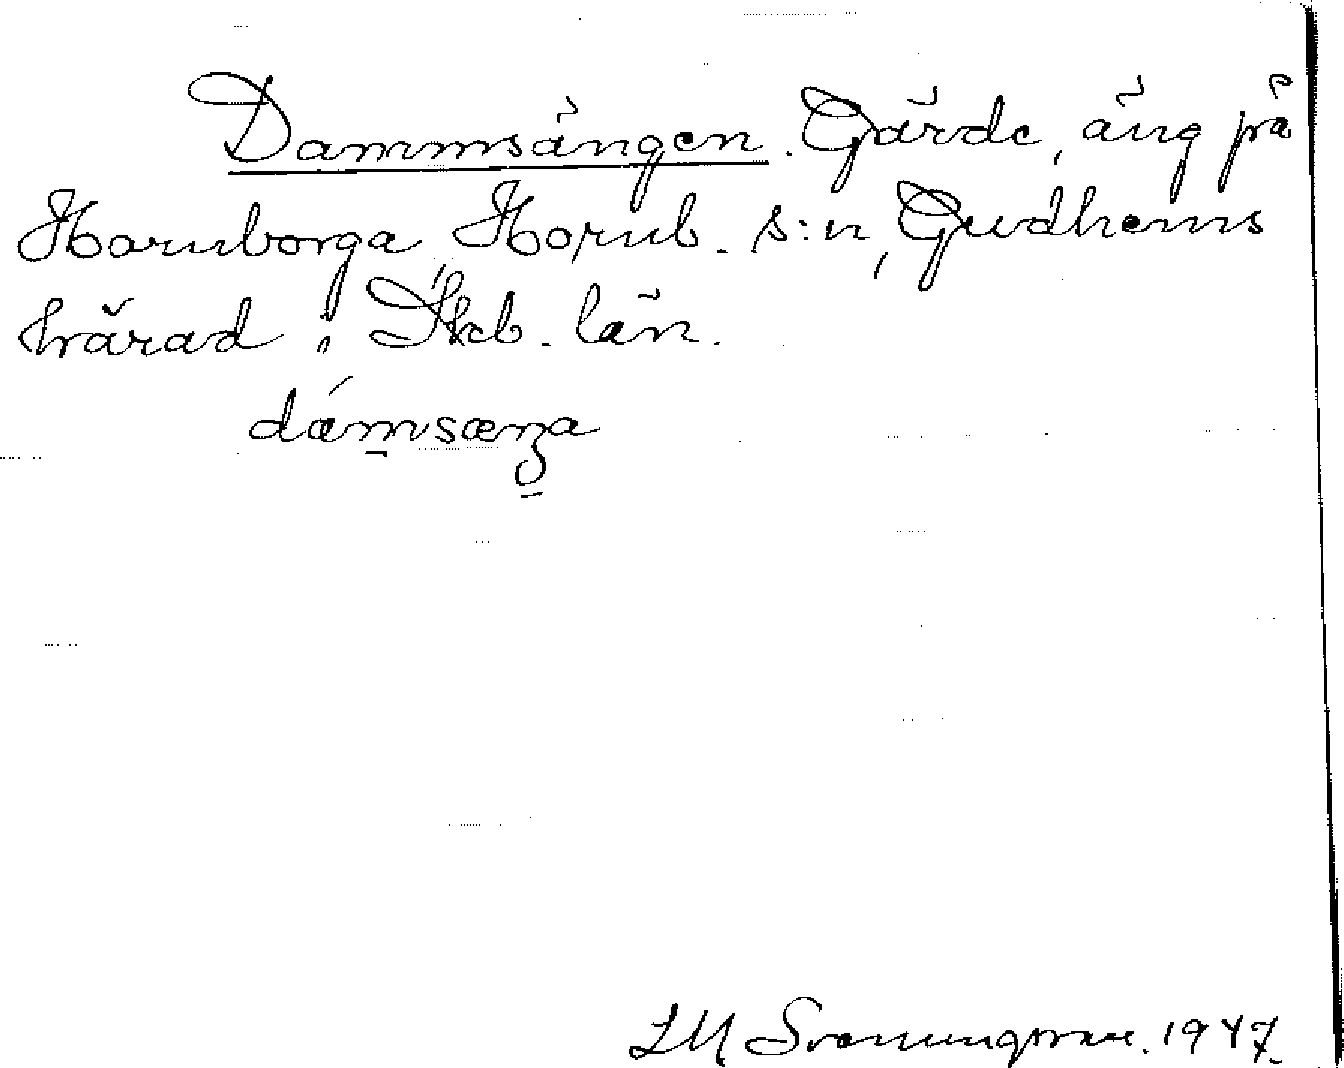 Dammsängen. Gärde, äng på
Hornborga, Hornb. s:n, Gudhems
härad i Skb. län.
dámsæŋa
LM Svenungsson. 1947